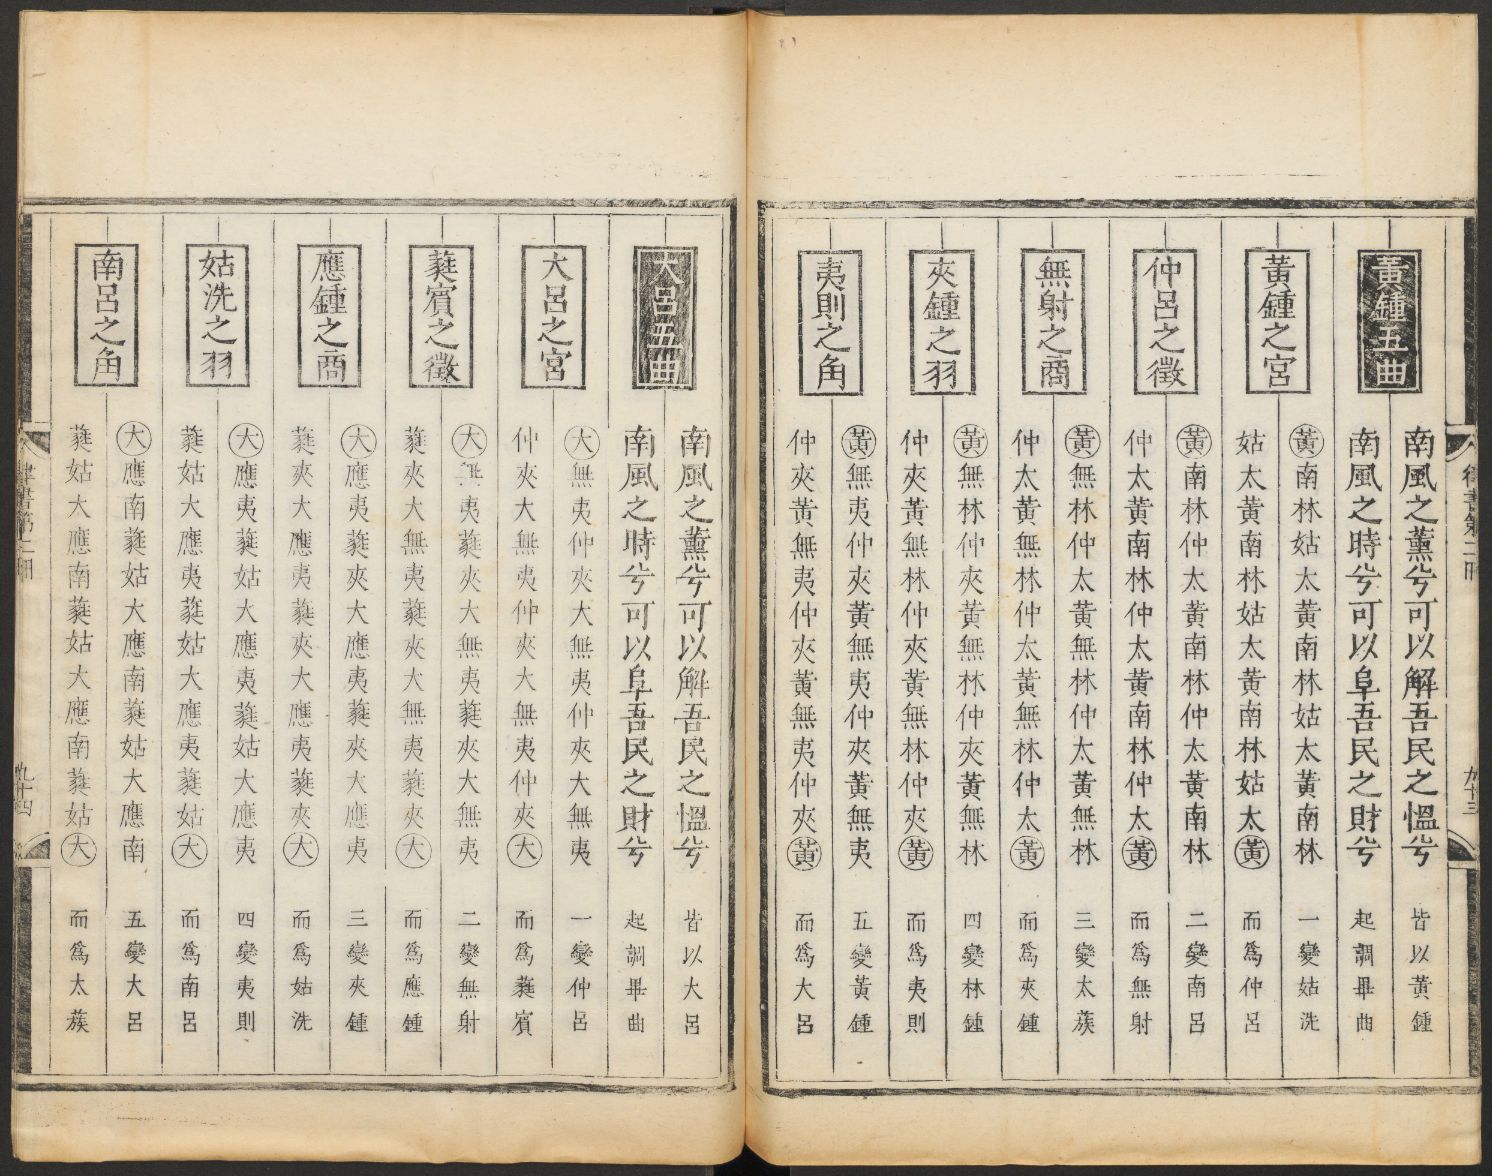 律書第二冊 九十三
黃鍾五曲
南風之薰兮可以解吾民之慍兮 皆以黃鍾
南風之時兮可以阜吾民之財兮 起調畢曲
黃鍾之宮
黃南林姑太黃南林姑太黃南林 一變姑洗
姑太黃南林姑太黃南林姑太黃 而爲仲呂
仲呂之徵
黃南林仲太黃南林仲太黃南林 二變南呂
仲太黃南林仲太黃南林仲太黃 而爲無射
無射之商
黃無林仲太黃無林仲太黃無林 三變太蔟
仲太黃無林仲太黃無林仲太黃 而爲夾鍾
夾鍾之羽
黃無林仲夾黃無林仲夾黃無林 四變林鍾
仲夾黃無林仲夾黃無林仲夾黃 而爲夷則
夷則之角
黃無夷仲夾黃無夷仲夾黃無夷 五變黃鍾
仲夾黃無夷仲夾黃無夷仲夾黃 而爲大呂
大呂五曲
南風之薰兮可以解吾民之慍兮 皆以大呂
南風之時兮可以阜吾民之財兮 起調畢曲
大呂之宮
大無夷仲夾大無夷仲夾大無夷 一變仲呂
仲夾大無夷仲夾大無夷仲夾大 而爲蕤賓
蕤賓之徵
大無夷蕤夾大無夷蕤夾大無夷 二變無射
蕤夾大無夷蕤夾大無夷蕤夾大 而爲應鍾
應鍾之商
大應夷蕤夾大應夷蕤夾大應夷 三變夾鍾
蕤夾大應夷蕤夾大應夷蕤夾大 而爲姑洗
姑洗之羽
大應夷蕤姑大應夷蕤姑大應夷 四變夷則
蕤姑大應夷蕤姑大應夷蕤姑大 而爲南呂
南呂之角
大應南蕤姑大應南蕤姑大應南 五變大呂
蕤姑大應南蕤姑大應南蕤姑大 而爲太蔟
律書第二冊 九十四